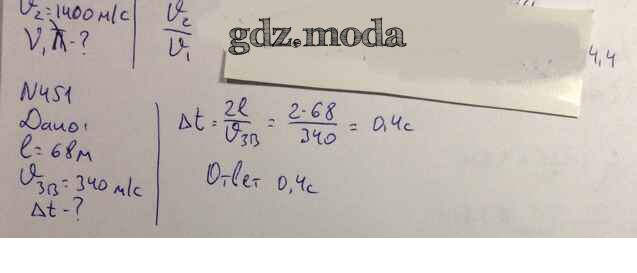 V₂ = 1400 м/с
V₁ λ - ?
V₂
V₁
gdz.moda
4,4
N451
Дано:
l = 68 м
Vзв = 340 м/с
Δt - ?
Δt = 2l/Vзв = 2·68/340 = 0,4с
Ответ 0,4с